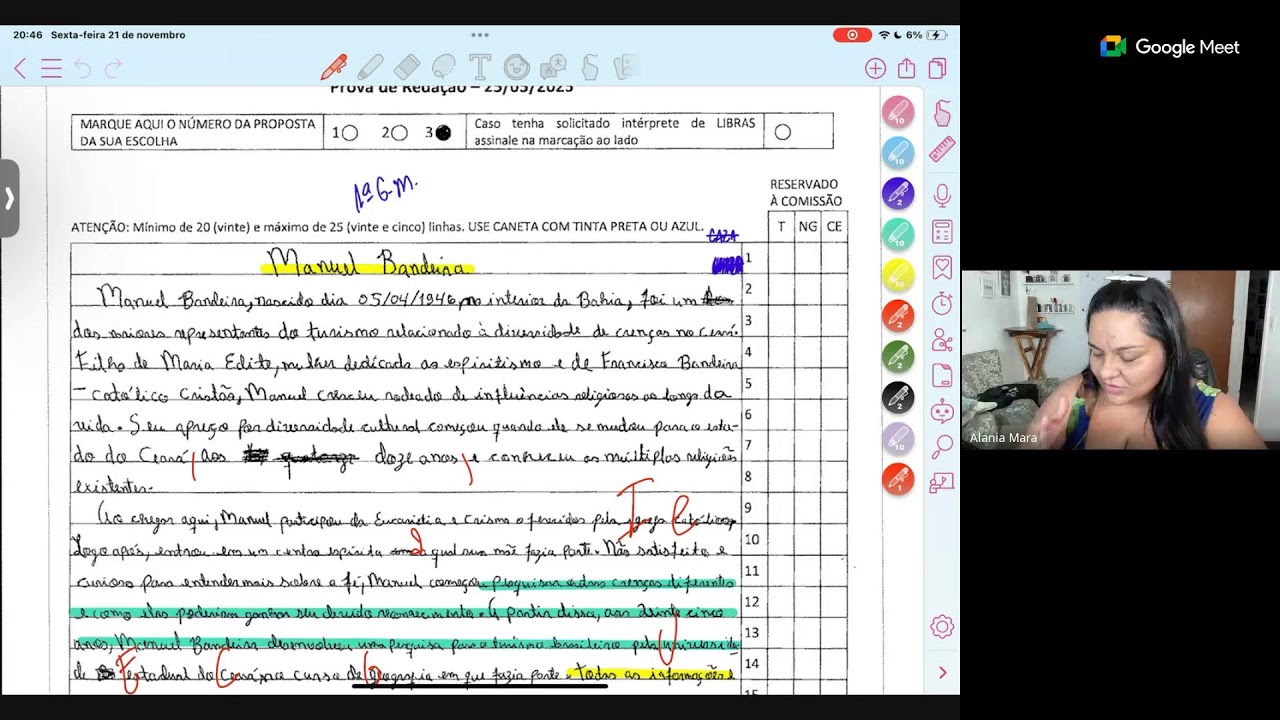 20:46 Sexta-feira 21 de novembro
6%
Google Meet
Prova de Redação – 25/05/2025
MARQUE AQUI O NÚMERO DA PROPOSTA DA SUA ESCOLHA
1 2 3
Caso tenha solicitado intérprete de LIBRAS assinale na marcação ao lado
1ª G.M.
RESERVADO À COMISSÃO
ATENÇÃO: Mínimo de 20 (vinte) e máximo de 25 (vinte e cinco) linhas. USE CANETA COM TINTA PRETA OU AZUL.
T NG CE
Manuel Bandeira 1
Manuel Bandeira, nascido dia 05/04/1946, no interior da Bahia, foi um 2
dos maiores representantes do turismo relacionado à diversidade de crenças no Ceará. 3
Filho de Maria Edite, mulher dedicada ao espiritismo e de Francisco Bandeira 4
– católico cristão, Manuel cresceu rodeado de influências religiosas ao longo da 5
vida. Seu apreço por diversidade cultural começou quando ele se mudou para o esta- 6
do do Ceará, aos doze anos, e conheceu as múltiplas religiões 7
existentes. 8
Ao chegar aqui, Manuel participou da Eucaristia e Crisma oferecidos pela igreja católica, 9
Logo após, entrou em um centro espírita qual sua mãe fazia parte. Não satisfeito e 10
curioso para entender mais sobre a fé, Manuel começou pesquisar outras crenças diferentes 11
e como elas poderiam ganhar seu devido reconhecimento. A partir disso, aos trinta cinco 12
anos, Manuel Bandeira desenvolveu uma pesquisa para o turismo brasileiro pela universida- 13
de Estadual do Ceará, no curso de Geografia em que fazia parte. todas as informações e 14
Alania Mara